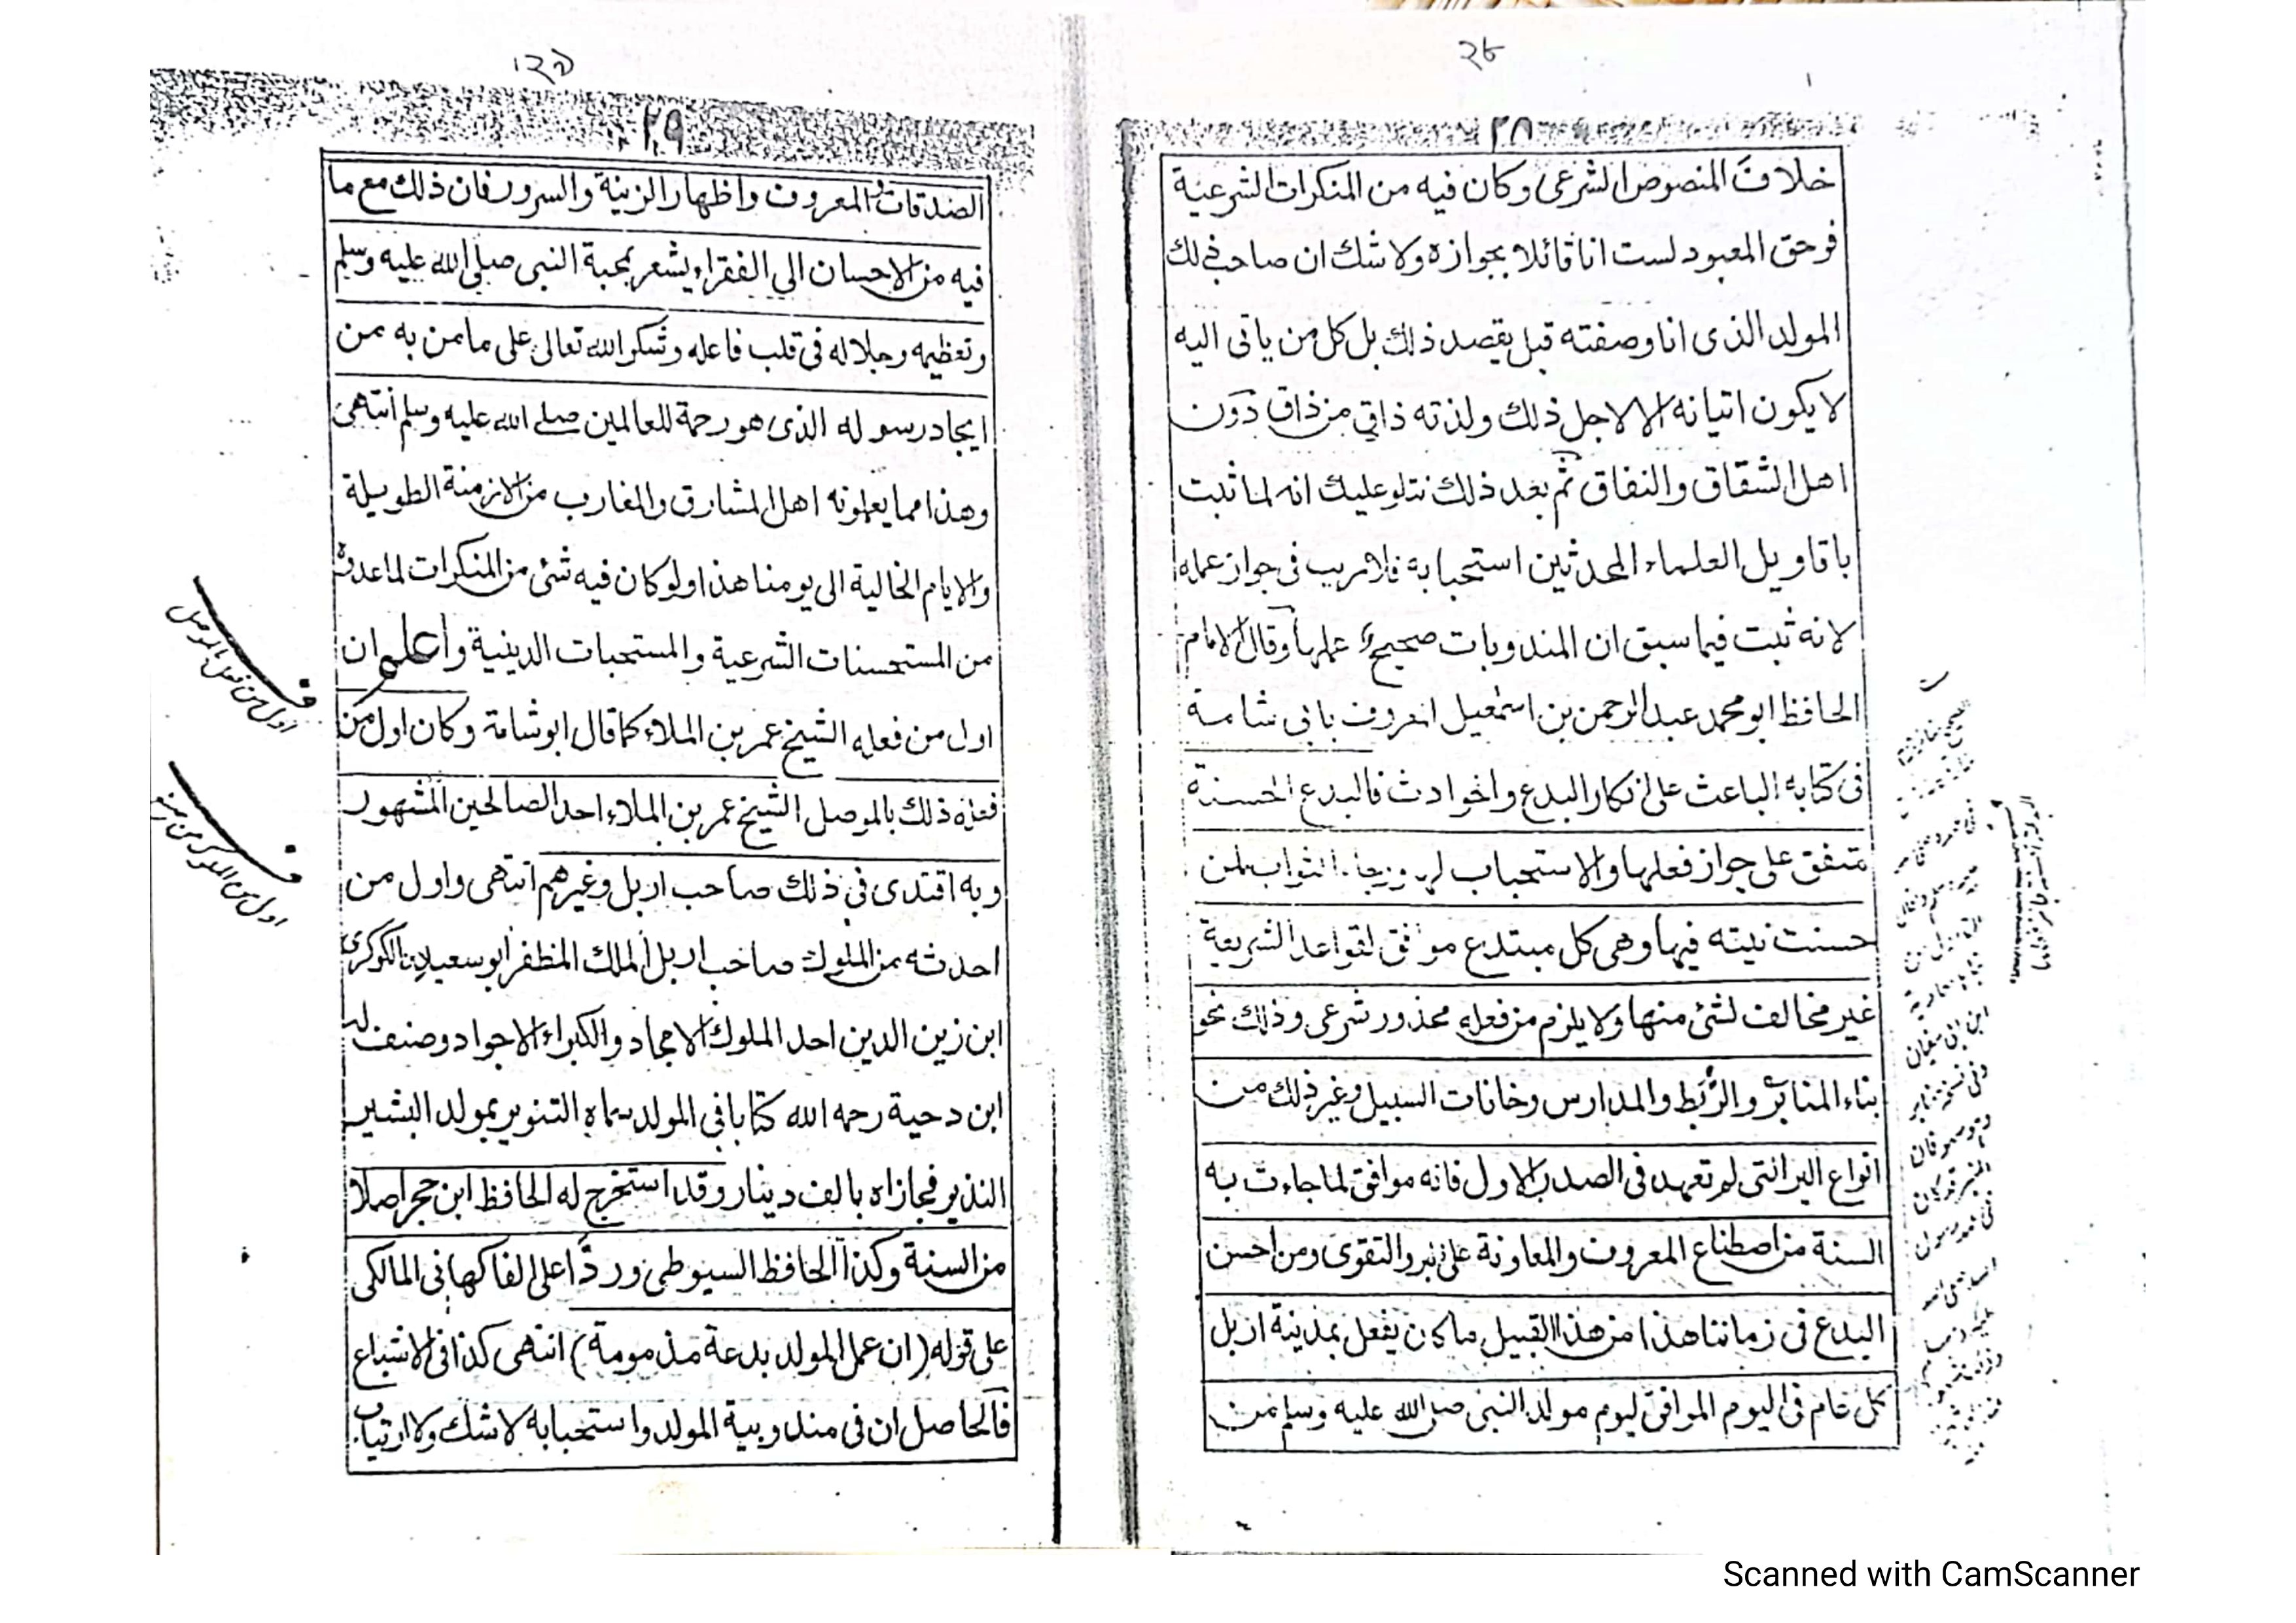 ٢٨
خلاف المنصوص الشرعى وكان فيه من المنكرات الشرعية
فوحق المعبود لست انا قائلا بجوازه ولا شك ان صاحب ذلك
المولد الذى انا وصفته قبل يقصد ذلك بل كل من ياتى اليه
لا يكون اتيانه الا لاجل ذلك ولذته ذاقى من ذاق دون
اهل الشقاق والنفاق ثم بعد ذلك نتلو عليك انه لما ثبت
باقاويل العلماء المحدثين استحبابه فلا ريب فى جواز عمله
لانه ثبت فيما سبق ان المندوبات صحيح عملها وقال الامام
الحافظ ابو محمد عبد الرحمن بن اسمعيل المعروف بابى شامة
فى كتابه الباعث على انكار البدع والحوادث فالبدع الحسنة
متفق على جواز فعلها والاستحباب لها ورجاء الثواب لمن
حسنت نيته فيها وهى كل مبتدع موافق لقواعد الشريعة
غير مخالف لشئ منها ولا يلزم من فعله محذور شرعى وذلك نحو
بناء المنابر والرُّبَط والمدارس وخانات السبيل وغير ذلك من
انواع البر التى لم تعهد فى الصدر الاول فانه موافق لما جاءت به
السنة من اصطناع المعروف والمعاونة على البر والتقوى ومن احسن
البدع فى زماننا هذا من هذا القبيل ما كان يفعل بمدينة اربل
كل عام فى اليوم الموافق ليوم مولد النبى صلى الله عليه وسلم من
٢٩
الصدقات والمعروف واظهار الزينة والسرور فان ذلك مع ما
فيه من الاحسان الى الفقراء يشعر بمحبة النبى صلى الله عليه وسلم
وتعظيمه وجلاله فى قلب فاعله وشكر الله تعالى على ما من به من
ايجاد رسوله الذى هو رحمة للعالمين صلے الله عليه وسلم انتهى
وهذا مما يعلمونه اهل المشارق والمغارب من الازمنة الطويلة
والايام الخالية الى يومنا هذا ولو كان فيه شئ من المنكرات لما عدوه
من المستحسنات الشرعية والمستحبات الدينية واعلم ان
اول من فعله الشيخ عمر بن الملاء كما قال ابو شامة وكان اول من
فعله ذلك بالموصل الشيخ عمر بن الملاء احد الصالحين المشهور
وبه اقتدى فى ذلك صاحب اربل وغيرهم انتهى واول من
احدثه من الملوك صاحب اربل الملك المظفر ابو سعيد الكوكرى
ابن زين الدين احد الملوك الامجاد والكبراء الاجواد وصنف له
ابن دحية رحمه الله كتابا فى المولد سماه التنوير بمولد البشير
النذير فجازاه بالف دينار وقد استخرج له الحافظ ابن حجر اصلا
من السنة وكذا الحافظ السيوطى وردَّا على الفاكهانى المالكى
على قوله (ان عمل المولد بدعة مذمومة) انتهى كذا فى الاشباع
فالحاصل ان فى مندوبية المولد واستحبابه لا شك ولا ارتياب
اول من فعل بالموصل
اول من الملوك من
Scanned with CamScanner